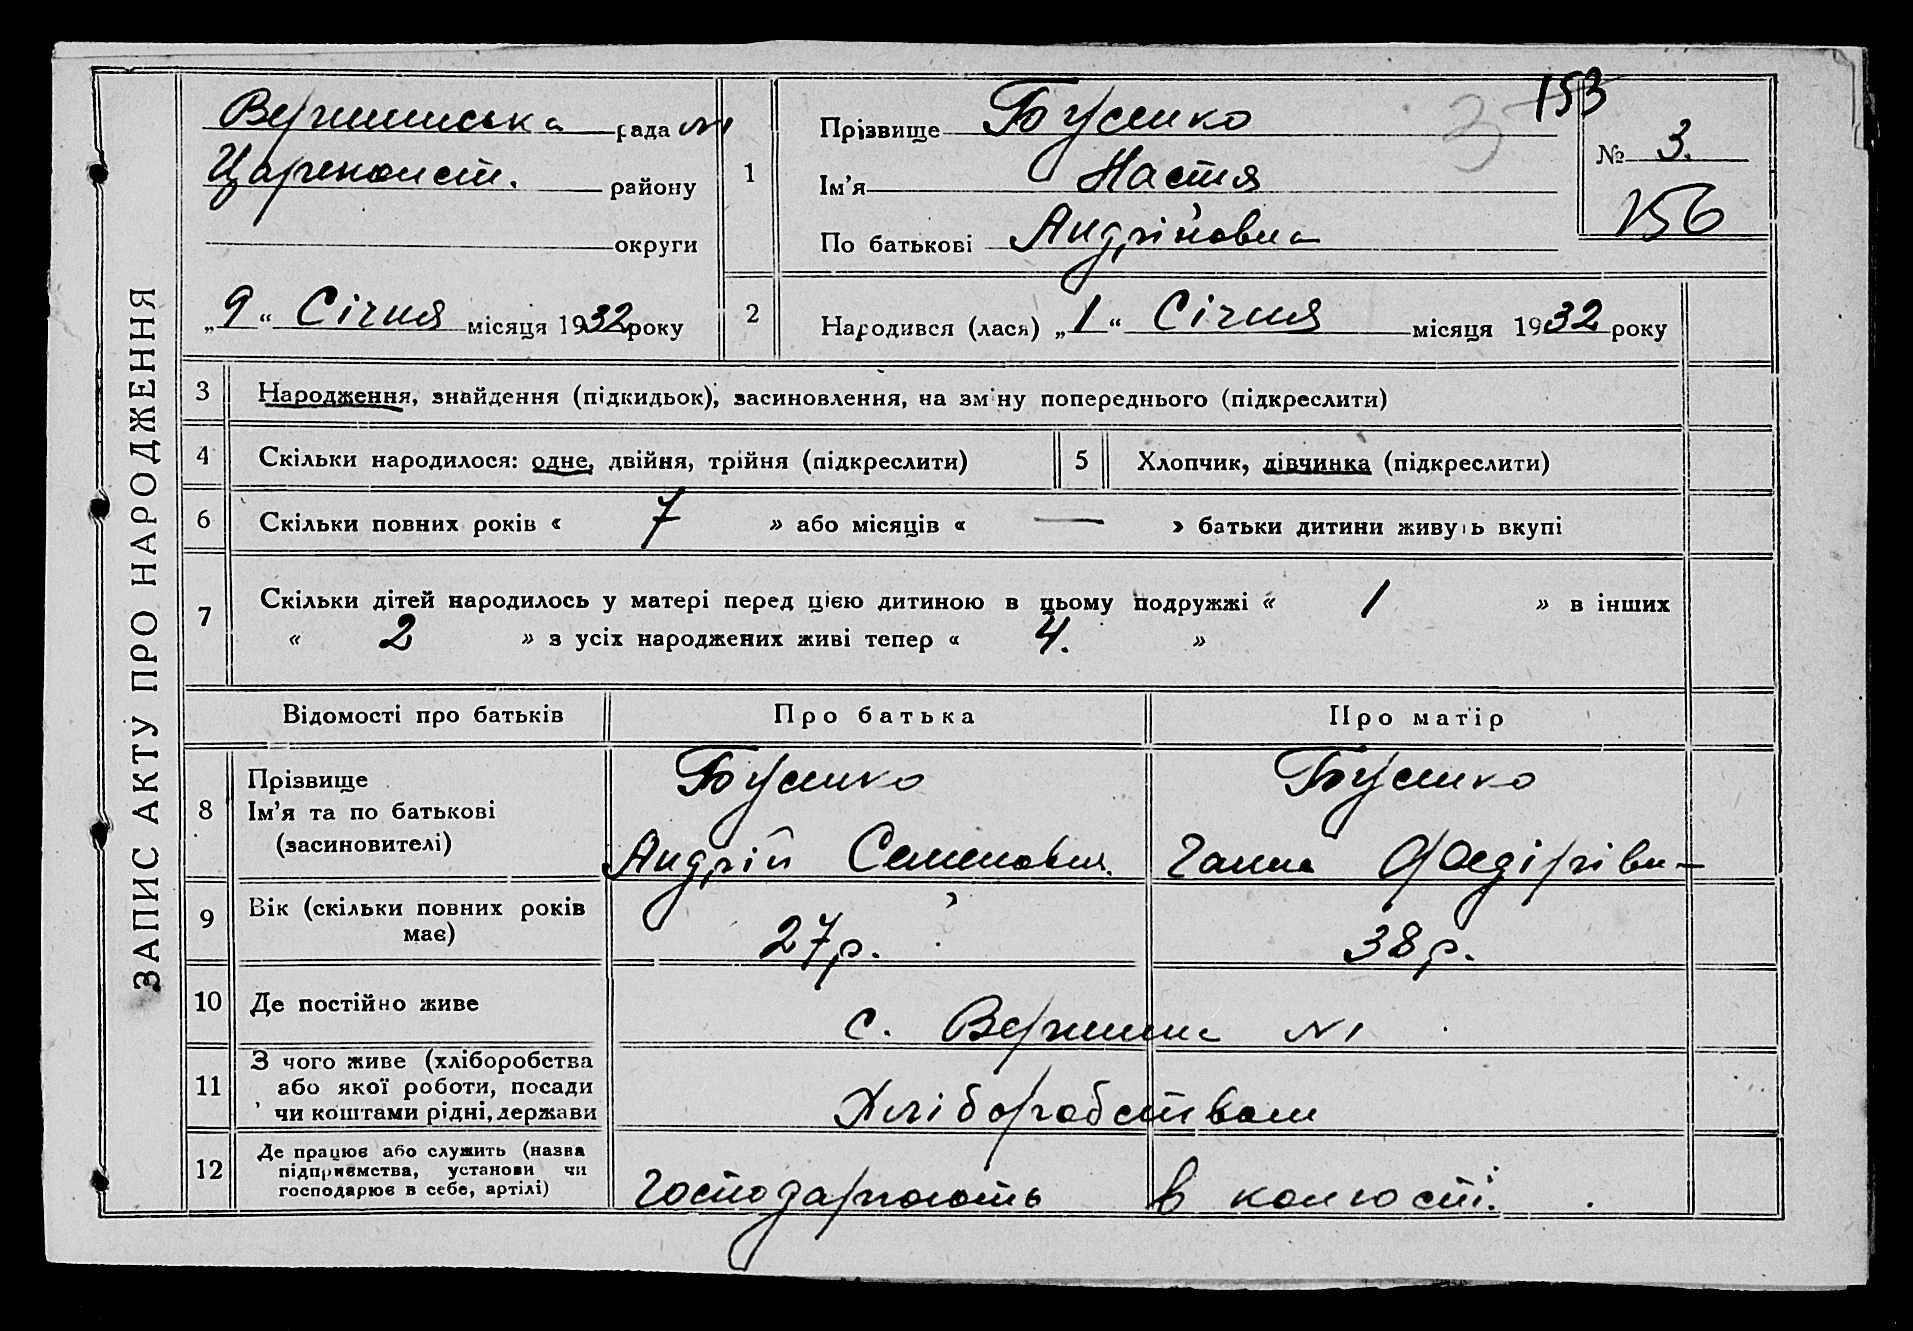 ЗАПИС АКТУ ПРО НАРОДЖЕННЯ
Вершинська рада №1
Цареконст. району
округи
„9“ Січня місяця 1932 року
1
Прізвище Бусмко
Ім'я Настя
По батькові Андрійовна
153
3
№ 3.
156
2
Народився (лася) „1“ Січня місяця 1932 року
3 Народження, знайдення (підкидьок), засиновлення, на зміну попереднього (підкреслити)
4 Скільки народилося: одне, двійня, трійня (підкреслити)
5 Хлопчик, дівчинка (підкреслити)
6 Скільки повних років « 7 » або місяців « — » батьки дитини живуть вкупі
7 Скільки дітей народилось у матері перед цією дитиною в цьому подружжі « 1 » в інших
« 2 » з усіх народжених живі тепер « 4. »
Відомості про батьків Про батька Про матір
8 Прізвище
Ім'я та по батькові
(засиновителі)
Андрій Семенович
Ганна Федірівн
9 Вік (скільки повних років
має)
27 р. 38 р.
10 Де постійно живе
с. Вершина №1
11 З чого живе (хліборобства
або якої роботи, посади
чи коштами рідні, держави
Хліборобством
12 Де працює або служить (назва
підприємства, установи чи
господарює в себе, артілі)
Господарюють в